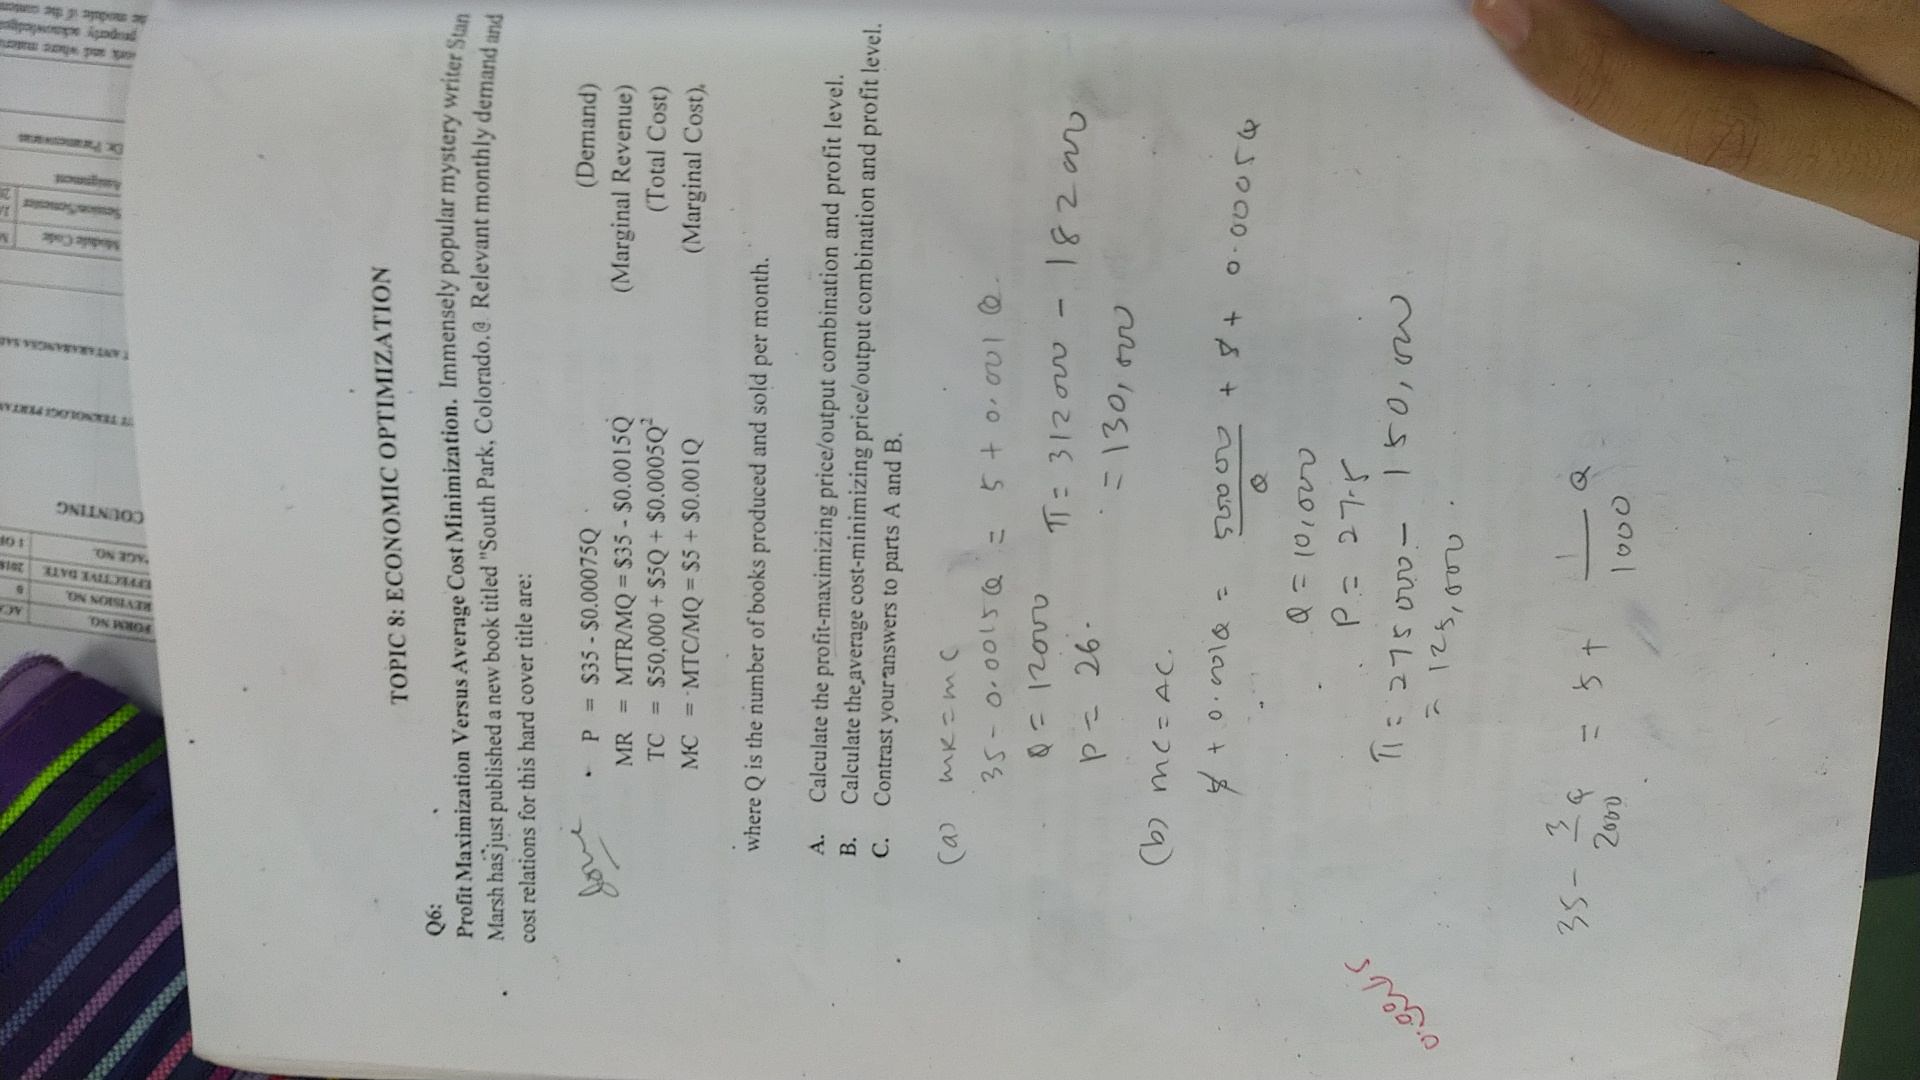 FORM NO.
REVISION NO.
EFFECTIVE DATE
AGE NO.
COUNTING
Module Code
Session/Semester
Assignment
Dr. Parameswaran
TOPIC 8: ECONOMIC OPTIMIZATION
Q6:
Profit Maximization Versus Average Cost Minimization. Immensely popular mystery writer Stan
Marsh has just published a new book titled "South Park, Colorado.@ Relevant monthly demand and
cost relations for this hard cover title are:
done
P = $35 - $0.00075Q (Demand)
MR = MTR/MQ = $35 - $0.0015Q (Marginal Revenue)
TC = $50,000 + $5Q + $0.0005Q² (Total Cost)
MC = MTC/MQ = $5 + $0.001Q (Marginal Cost).
where Q is the number of books produced and sold per month.
A. Calculate the profit-maximizing price/output combination and profit level.
B. Calculate the average cost-minimizing price/output combination and profit level.
C. Contrast your answers to parts A and B.
(a) MR = MC
35 - 0.0015Q = 5 + 0.001Q
Q = 12000
P = 26.
π = 312000 - 182000
= 130,000
(b) MC = AC.
5 + 0.001Q = 50000/Q + 5 + 0.0005Q
Q = 10,000
P = 27.5
π = 275000 - 150,000
= 125,000.
35 - 3/2000 Q = 5 + 1/1000 Q